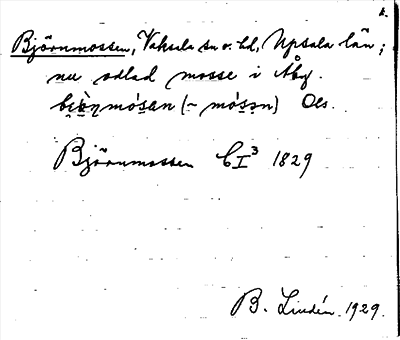 Björnmossen, Vaksala sn o. hd, Upsala län;
nu odlad mosse i Åby.
mósan (~ móson) Ols.
Björnmossen 1829
B. Lindén 1929.